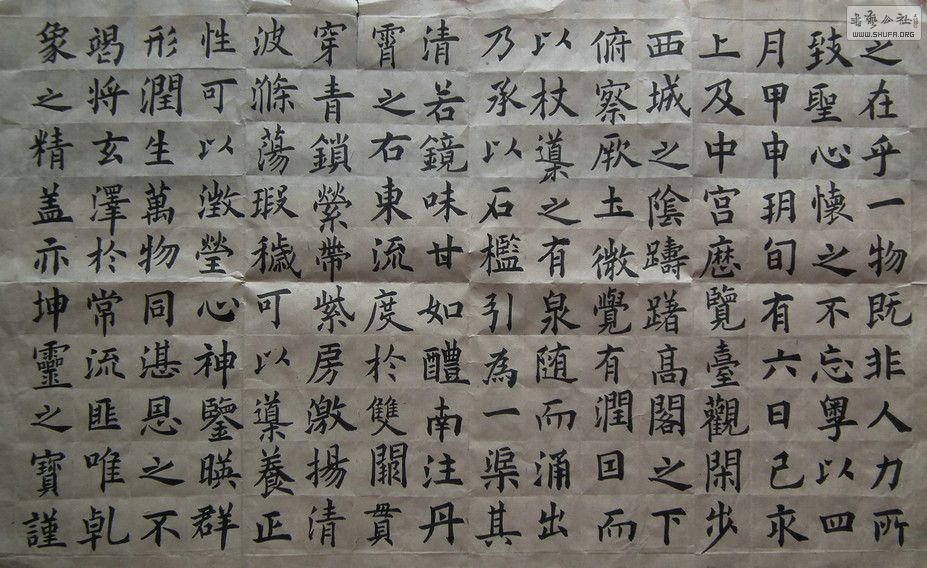 之在乎一物既非人力所
致聖心懷之不忘粵以四
月甲申朔旬有六日己亥
上及中宮歷覽臺觀閑步
西城之陰躊躇高閣之下
俯察厥土微覺有潤因而
以杖導之有泉随而涌出
乃承以石檻引為一渠其
清若鏡味甘如醴南注丹
霄之右東流度於雙闕貫
穿青鎖縈帶紫房激揚清
波滌蕩瑕穢可以導養正
性可以澂瑩心神鑒暎群
形潤生萬物同湛恩之不
竭将玄澤於常流匪唯乹
象之精盖亦坤靈之寶謹
WWW.SHUFA.ORG